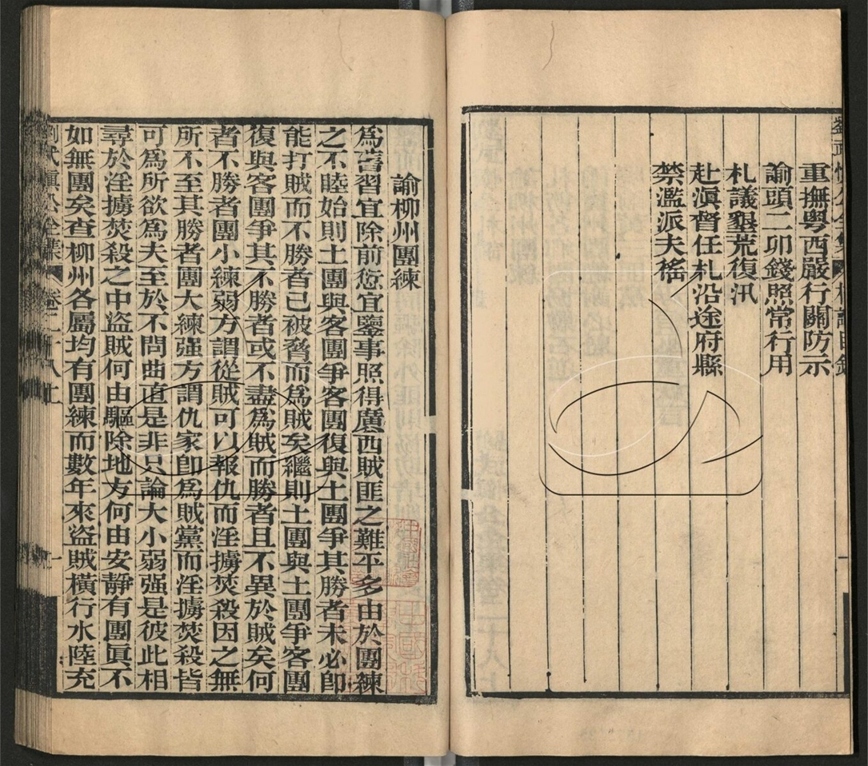 重撫粵西嚴行關防示
諭頭二卯錢照常行用
札議墾荒復汛
赴滇督任札沿途府縣
禁濫派夫徭
諭柳州團練
為舊習宜除前愆宜鑒事照得廣西賊匪之難平多由於團練
之不睦始則土團與客團爭客團復與土團爭其勝者未必卽
能打賊而不勝者已被脅而為賊矣繼則土團與土團爭客團
復與客團爭其不勝者或不盡為賊而勝者且不異於賊矣何
者不勝者團小練弱方謂從賊可以報仇而淫擄焚殺因之無
所不至其勝者團大練强方謂仇家卽為賊黨而淫擄焚殺皆
可為所欲為夫至於不問曲直是非只論大小弱强是彼此相
尋於淫擄焚殺之中盜賊何由驅除地方何由安靜有團眞不
如無團矣查柳州各屬均有團練而數年來盜賊橫行水陸充